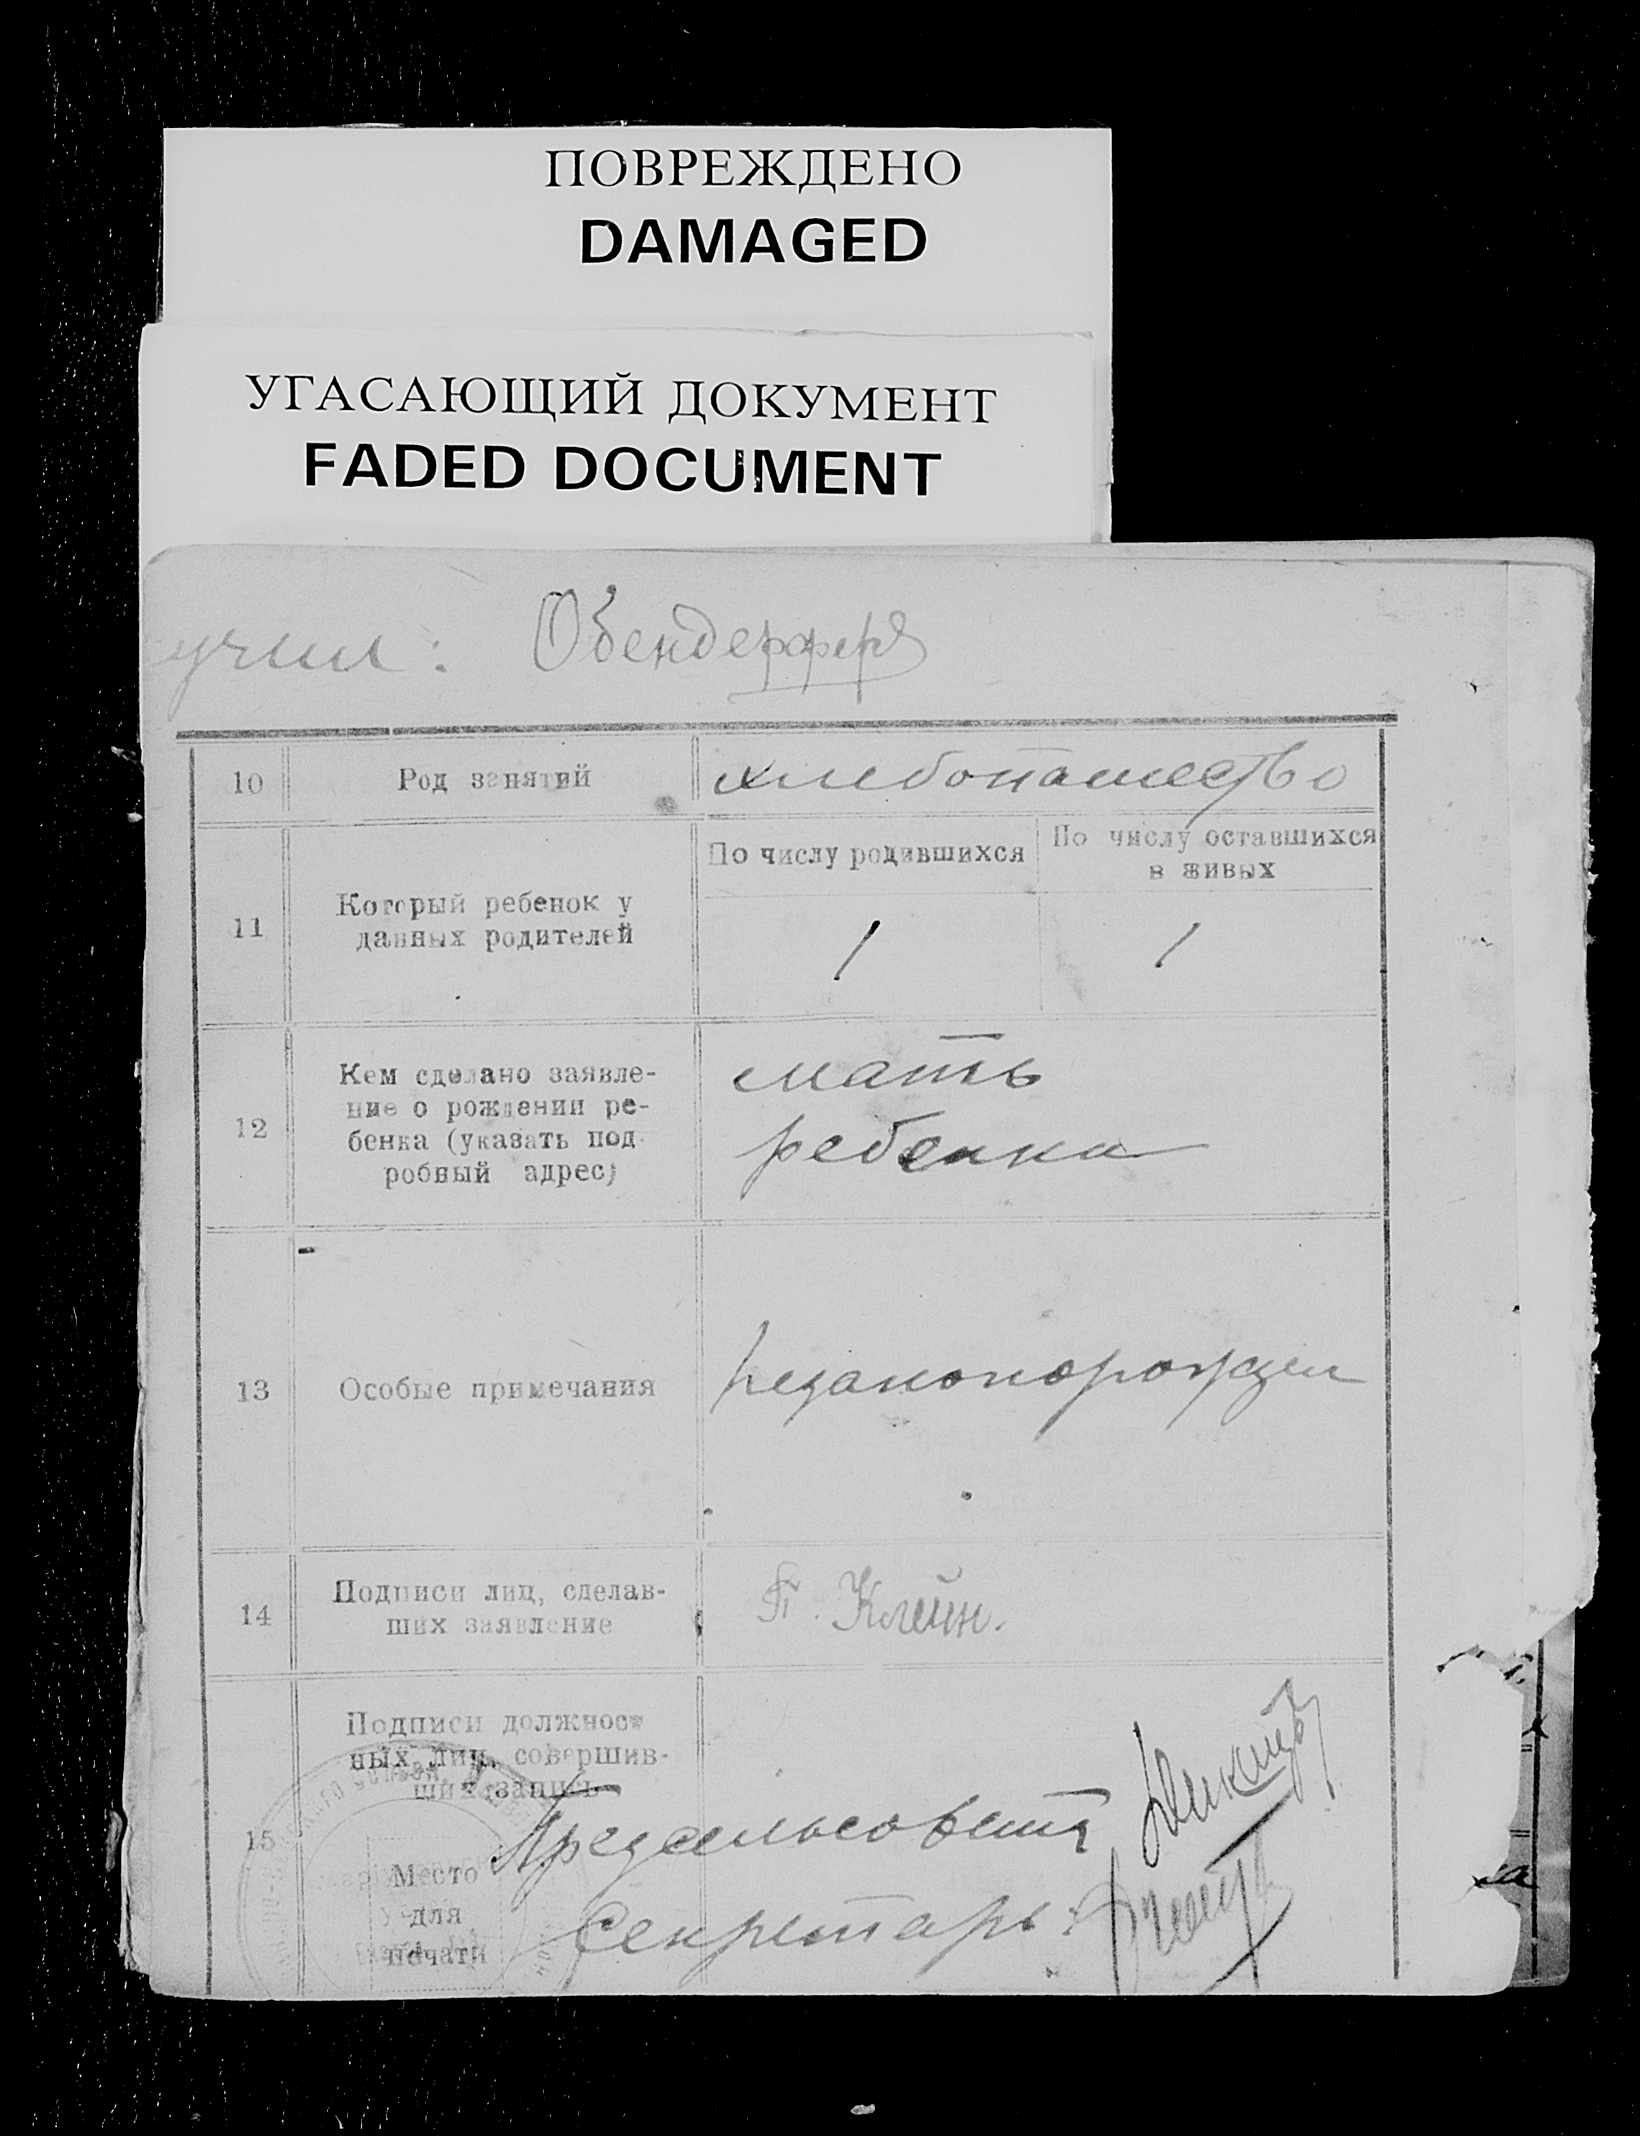 ПОВРЕЖДЕНО
DAMAGED
УГАСАЮЩИЙ ДОКУМЕНТ
FADED DOCUMENT
учил: Обендерфер
10 Род занятий хлебопашество
11 Который ребенок у
данных родителей
По числу родившихся
По числу оставшихся
в живых
1 1
12 Кем сделано заявле-
ние о рождении ре-
бенка (указать под-
робный адрес)
мать
ребенка
13 Особые примечания
14 Подписи лиц, сделав-
ших заявление
Клейн.
15 Подписи должност
ных лиц, совершив-
ших запись
Предсельсовета
Место
для
печати
Секретарь: